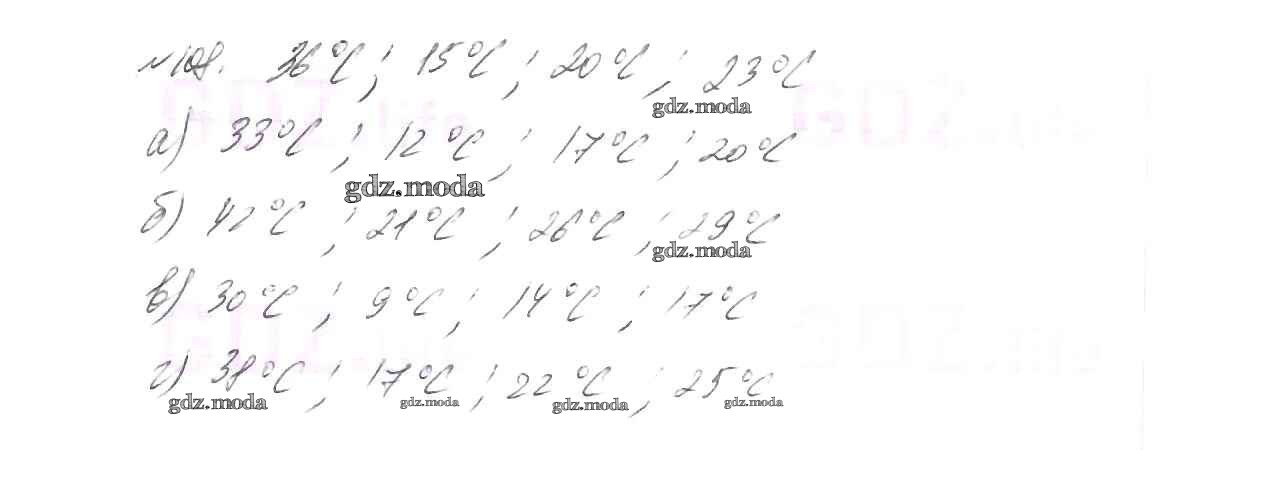 №108. 36°C; 15°C; 20°C; 23°C
gdz.moda
а) 33°C; 12°C; 17°C; 20°C
gdz.moda
б) 42°C; 21°C; 26°C; 29°C
gdz.moda
в) 30°C; 9°C; 14°C; 17°C
г) 38°C; 17°C; 22°C; 25°C
gdz.moda gdz.moda gdz.moda gdz.moda